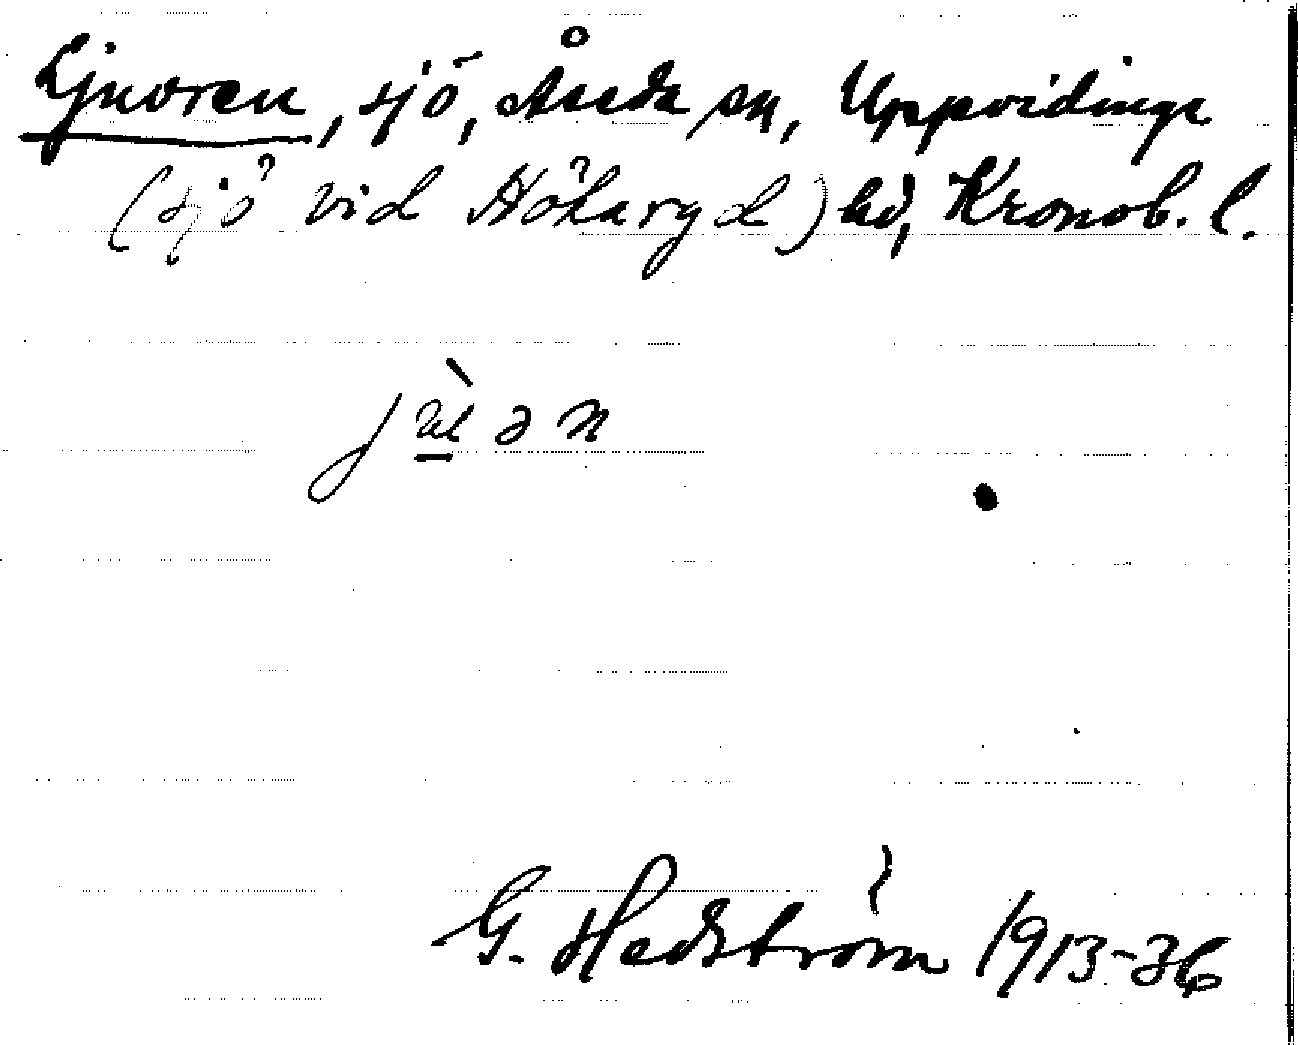 Ljuvren, sjö, Åseda sn, Uppvidinge
(sjö vid Hökaryd) hd, Kronob. l.
G. Hedström 1913-36